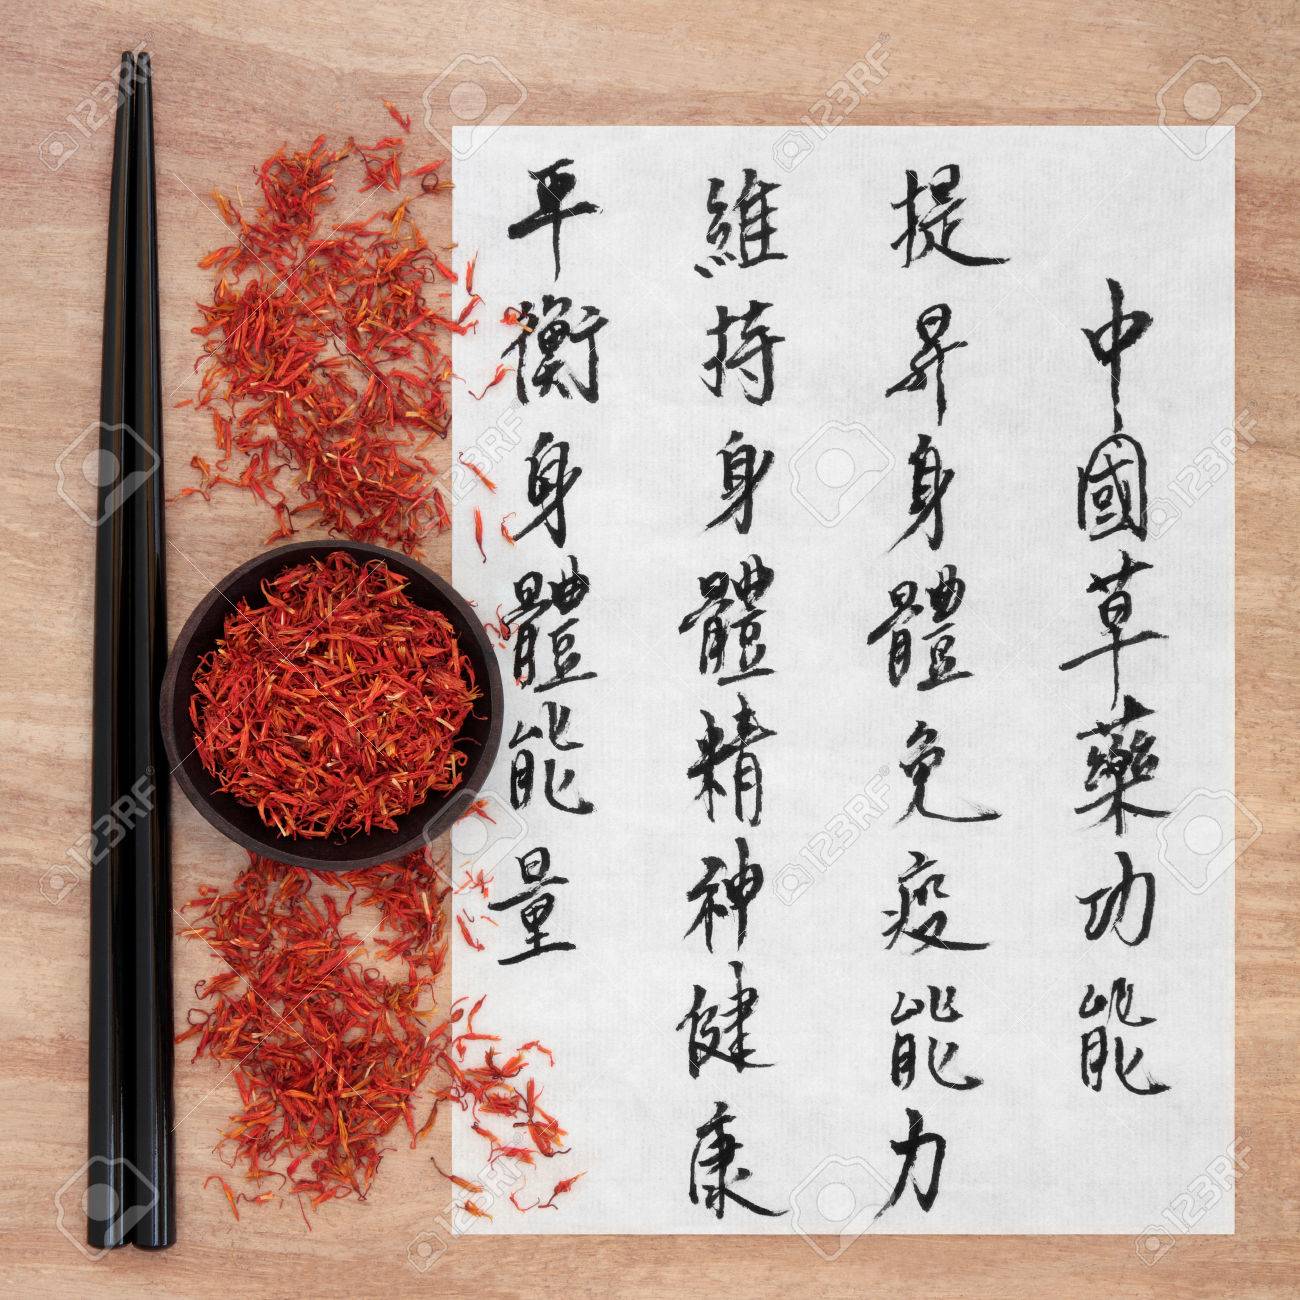 中國草藥功能
提昇身體免疫能力
維持身體精神健康
平衡身體能量
123RF